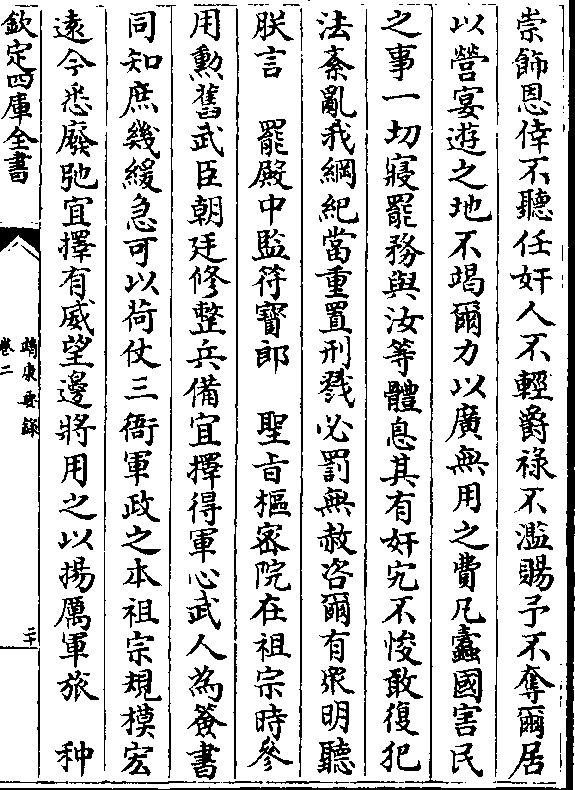 崇飾恩倖不聽任奸人不輕爵祿不濫賜予不奪爾居
以營宴遊之地不竭爾力以廣無用之費凡蠹國害民
之事一切寢罷務與汝等體息其有奸宄不悛敢復犯
法紊亂我綱紀當重置刑戮必罰無赦咨爾有衆明聽
朕言　罷殿中監符寳郎　聖㫖樞密院在祖宗時參
用勲舊武臣朝廷修整兵備宜擇得軍心武人為簽書
同知庶幾緩急可以荷仗三衙軍政之本祖宗規模宏
遠今悉廢弛宜擇有威望邊將用之以揚厲軍旅　种
欽定四庫全書
靖康要錄
卷二
二十